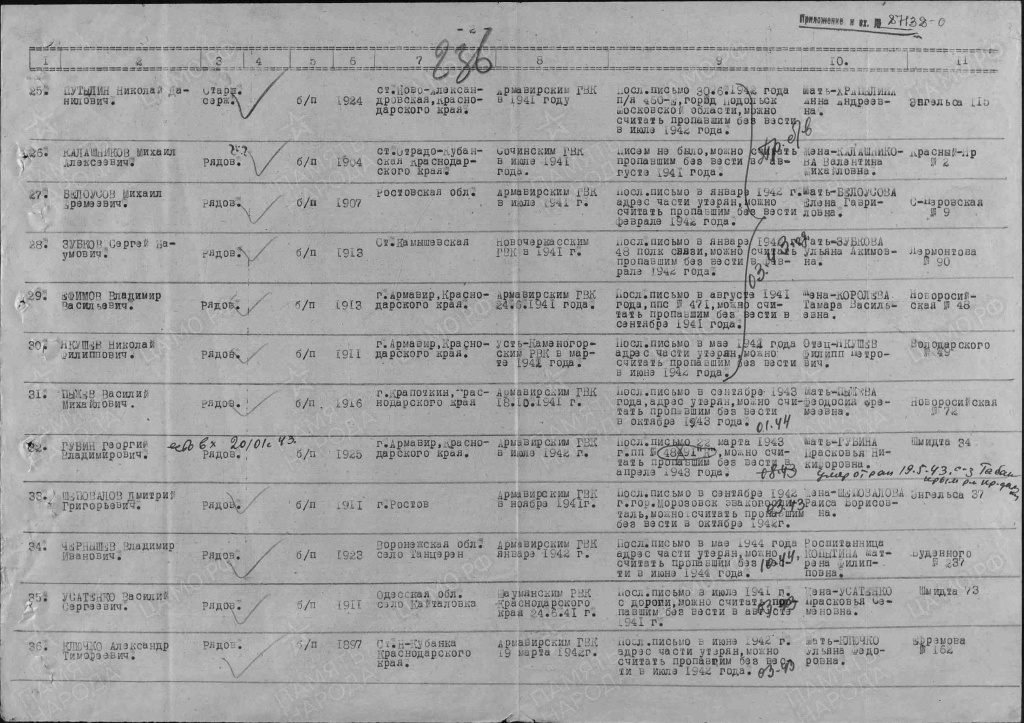 Приложение к вх. № 27132-0
236
1 2 3 4 5 6 7 8 9 10. 11
25. ПУТЫЛИН Николай Данилович. Старш. серж. б/п 1924 ст.Ново-Александровская, Краснодарского края. Армавирским РВК в 1941 году Посл.письмо 30.6.1942 года п/я 460-, город Подольск Московской области, можно считать пропавшим без вести в июле 1942 года. Мать- Анна Андреевна. Энгельса 115
26. КАЛАШНИКОВ Михаил Алексеевич. Рядов. б/п 1904 ст.Отрадо-Кубанская Краснодарского края. Сочинским РВК в июле 1941 года. Писем не было, можно считать пропавшим без вести в августе 1941 года. Жена-КАЛАШНИКОВА Валентина Михайловна. Красный-Яр № 2
27. БЕЛОУСОВ Михаил Еремеевич. Рядов. б/п 1907 Ростовская обл. Армавирским РВК в июле 1941 г. Посл.письмо в январе 1942 г. адрес части утерян, можно считать пропавшим без вести феврале 1942 года. Мать-БЕЛОУСОВА Елена Гавриловна. С-Перовская № 9
28. ЗУБКОВ Сергей Наумович. Рядов. б/п 1913 Ст.Камышевская Новочеркасским РВК в 1941 г. Посл.письмо в январе 1942 года 48 полк связи, можно считать пропавшим без вести в феврале 1942 года. Мать-ЗУБКОВА Ульяна Акимовна. Лермонтова № 90
29. ЕФИМОВ Владимир Васильевич. Рядов. б/п 1913 г.Армавир, Краснодарского края. Армавирским РВК 24.6.1941 года. Посл.письмо в августе 1941 года, ППС № 471, можно считать пропавшим без вести в сентябре 1941 года. Жена-КОРОЛЕВА Тамара Васильевна. Новороссийская № 48
30. ЯКУШЕВ Николай Филиппович. Рядов. б/п 1911 г.Армавир, Краснодарского края. Усть-Каменогорским РВК в марте 1942 года. Посл.письмо в мае 1942 года адрес части утерян, можно считать пропавшим без вести в июне 1942 года. Отец-ЯКУШЕВ Филипп Петрович. Володарского № 49
31. ПЫЖЕВ Василий Михайлович. Рядов. б/п 1916 г.Крапоткин, Краснодарского края Армавирским РВК 18.10.1941 г. Посл.письмо в сентябре 1943 года, адрес утерян, можно считать пропавшим без вести в октябре 1943 года. 01.44 Мать-ПЫЖЕВА Феодосия Еремеевна. Новоросийская № 72
32. ГУБИН Георгий Владимирович. 20/01 43. Рядов. б/п 1925 г.Армавир, Краснодарского края. Армавирским РВК в июле 1942 г. Посл.письмо 22 марта 1943 г.пп № , можно считать пропавшим без вести в апреле 1943 года. 08.43 Мать-ГУБИНА Прасковья Никифоровна. Шмидта 34
умер от ран 19.5.43.
33. ШЕПОВАЛОВ Дмитрий Григорьевич. Рядов. б/п 1911 г.Ростов Армавирским РВК в ноябре 1941г. Посл.письмо в сентябре 1942 г.гор.Морозовск эвакогоспиталь, можно считать пропавшим без вести в октябре 1942г. Жена-ШЕПОВАЛОВА Раиса Борисовна. Энгельса 37
34. ЧЕРНЫШЕВ Владимир Иванович. Рядов. б/п 1923 Воронежская обл. село Танцерен Армавирским РВК январе 1942 г. Посл.письмо в мае 1944 года адрес части утерян, можно считать пропавшим без вести в июне 1944 года. 10.44. Воспитанница КОПЫТИНА Матрена Филипповна. Буденного № 237
35. УСАТЕНКО Василий Сергеевич. Рядов. б/п 1911 Одесская обл. село Кайталовка Науманским РВК Краснодарского края 24.8.41 г. Посл.письмо в июле 1941 г. с дороги, можно считать пропавшим без вести в августе 1941 г. Жена-УСАТЕНКО Прасковья Семеновна. Шмидта 73
36. КЛЮЧКО Александр Тимофеевич. Рядов. б/п 1897 Ст.Н-Кубанка Краснодарского края. Армавирским РВК 19 марта 1942г. Посл.письмо в июне 1942 г. адрес части утерян, можно считать пропавшим без вести в июле 1942 года. 03.43 Мать-КЛЮЧКО Ульяна Федоровна. Ефремова № 162